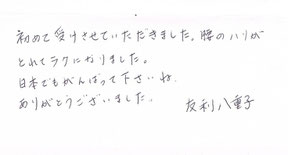 初めて受けさせていただきました。腰のハリが
とれてラクになりました。
日本でもがんばって下さいね。
ありがとうございました。
友利八重子